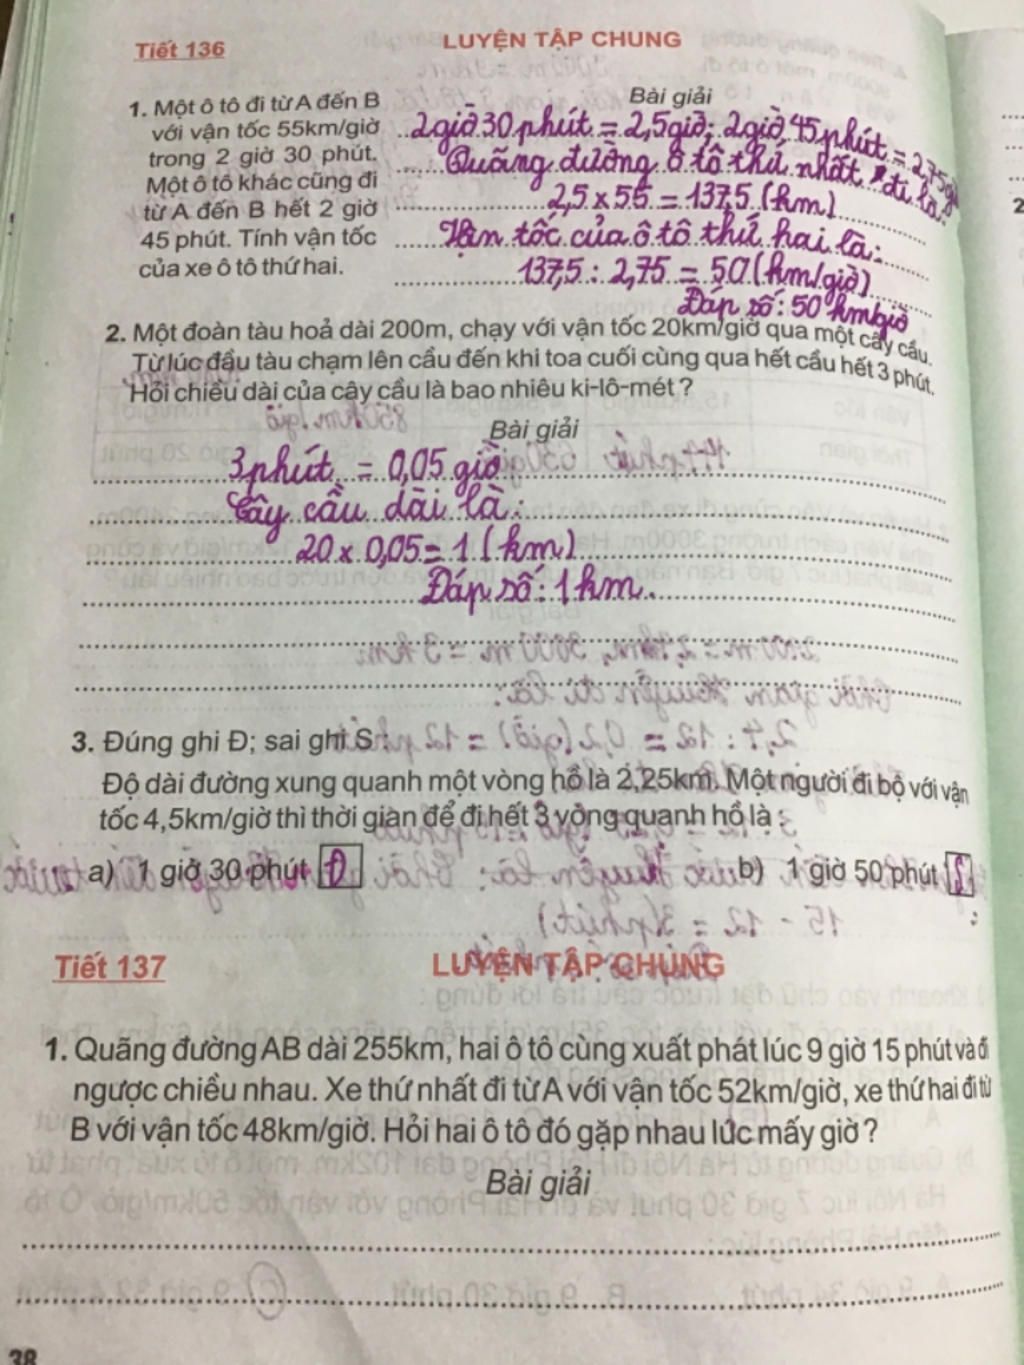 Tiết 136
LUYỆN TẬP CHUNG
1. Một ô tô đi từ A đến B
với vận tốc 55km/giờ
trong 2 giờ 30 phút.
Một ô tô khác cũng đi
từ A đến B hết 2 giờ
45 phút. Tính vận tốc
của xe ô tô thứ hai.
Bài giải
2giờ 30 phút = 2,5giờ; 2giờ 45 phút = 2,75giờ
Quãng đường ô tô thứ nhất đi là:
2,5 x 55 = 137,5 (km)
Vận tốc của ô tô thứ hai là:
137,5 : 2,75 = 50 (km/giờ)
Đáp số: 50 km/giờ
2. Một đoàn tàu hoả dài 200m, chạy với vận tốc 20km/giờ qua một cây cầu.
Từ lúc đầu tàu chạm lên cầu đến khi toa cuối cùng qua hết cầu hết 3 phút.
Hỏi chiều dài của cây cầu là bao nhiêu ki-lô-mét ?
Bài giải
3 phút = 0,05 giờ
Cây cầu dài là:
20 x 0,05 = 1 (km)
Đáp số: 1 km.
3. Đúng ghi Đ; sai ghi S :
Độ dài đường xung quanh một vòng hồ là 2,25km. Một người đi bộ với vận
tốc 4,5km/giờ thì thời gian để đi hết 3 vòng quanh hồ là :
a) 1 giờ 30 phút Đ b) 1 giờ 50 phút S
Tiết 137
LUYỆN TẬP CHUNG
1. Quãng đường AB dài 255km, hai ô tô cùng xuất phát lúc 9 giờ 15 phút và đi
ngược chiều nhau. Xe thứ nhất đi từ A với vận tốc 52km/giờ, xe thứ hai đi từ
B với vận tốc 48km/giờ. Hỏi hai ô tô đó gặp nhau lúc mấy giờ ?
Bài giải
38
2